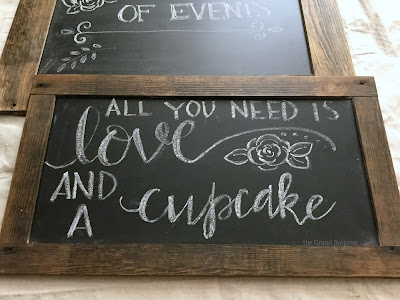 OF EVENTS
ALL YOU NEED IS
love
AND
A cupcake
the Grand Surprise